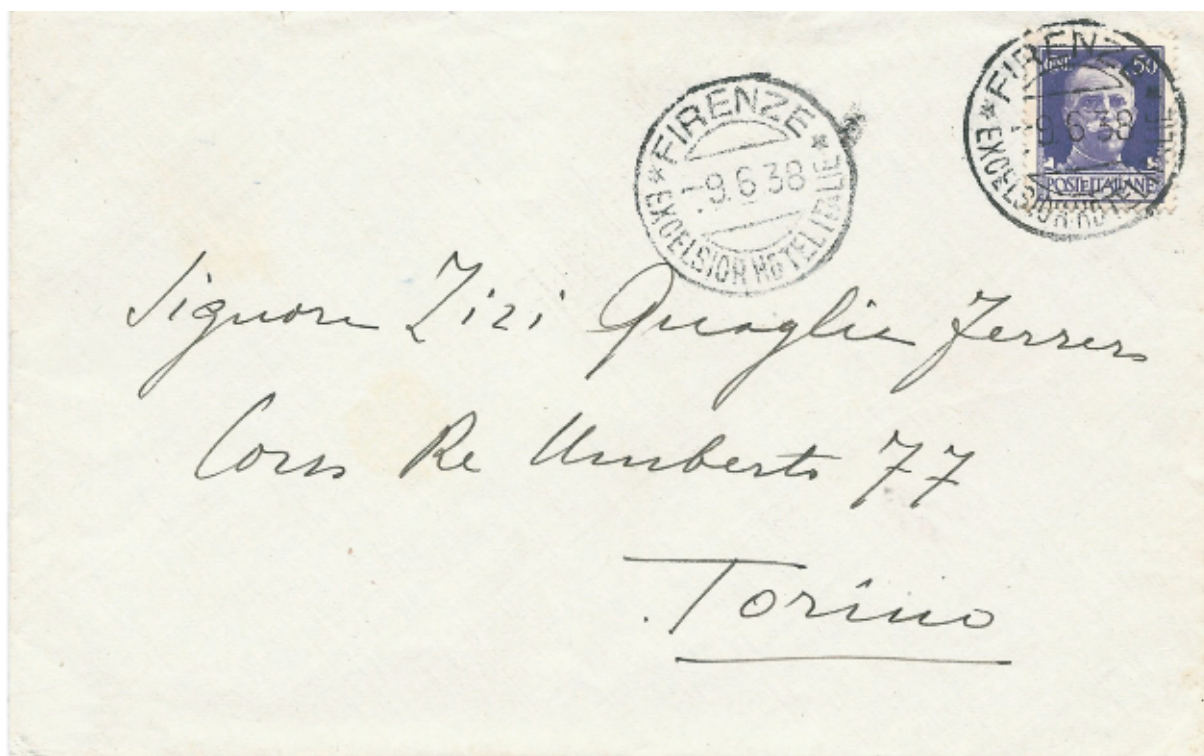 FIRENZE
-9.6.38
EXCELSIOR HOTEL ITALIE
FIRENZE
-9.6.38
EXCELSIOR HOTEL ITALIE
CENT. 50
POSTE ITALIANE
Signora Zizi Quaglia Ferrero
Corso Re Umberto 77
Torino